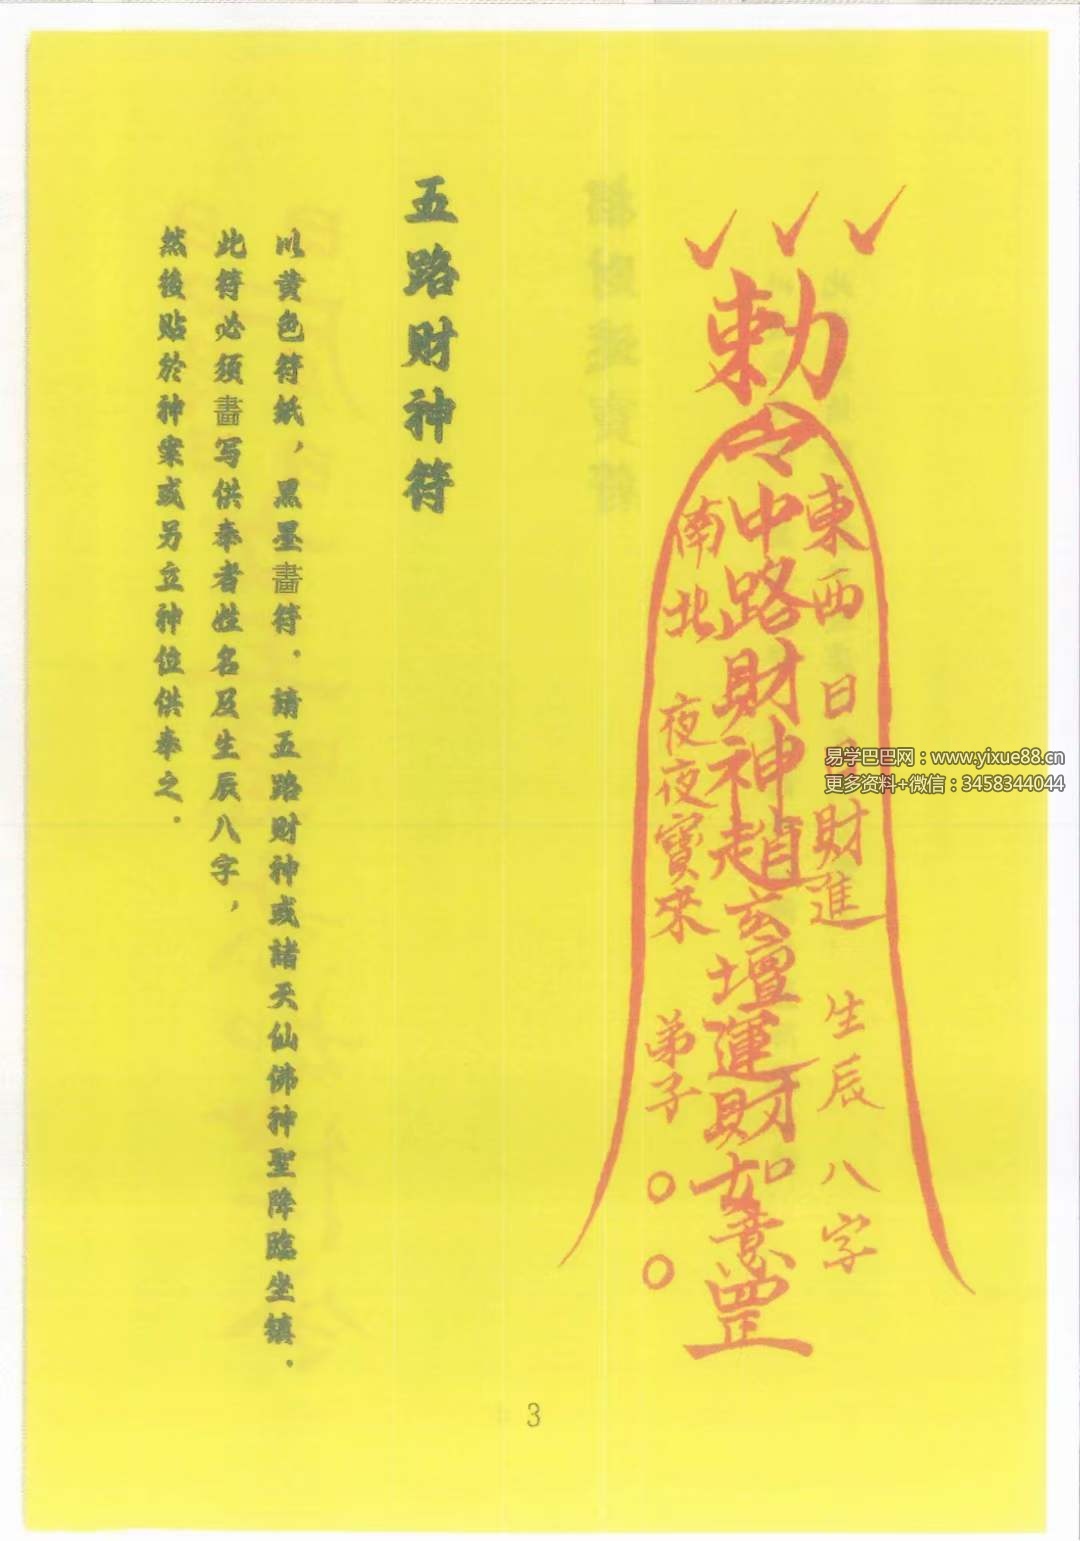 勅令
東西日日財進 生辰八字
中路財神趙玄壇運財如意罡
南北夜夜寶來 弟子○○
五路财神符
以黄色符紙，黑墨畫符．請五路财神或諸天仙佛神聖降臨坐镇．
此符必须畫写供奉者姓名及生辰八字，
然後贴於神案或另立神位供奉之．
易学巴巴网：www.yixue88.cn
更多资料+微信：3458344044
3